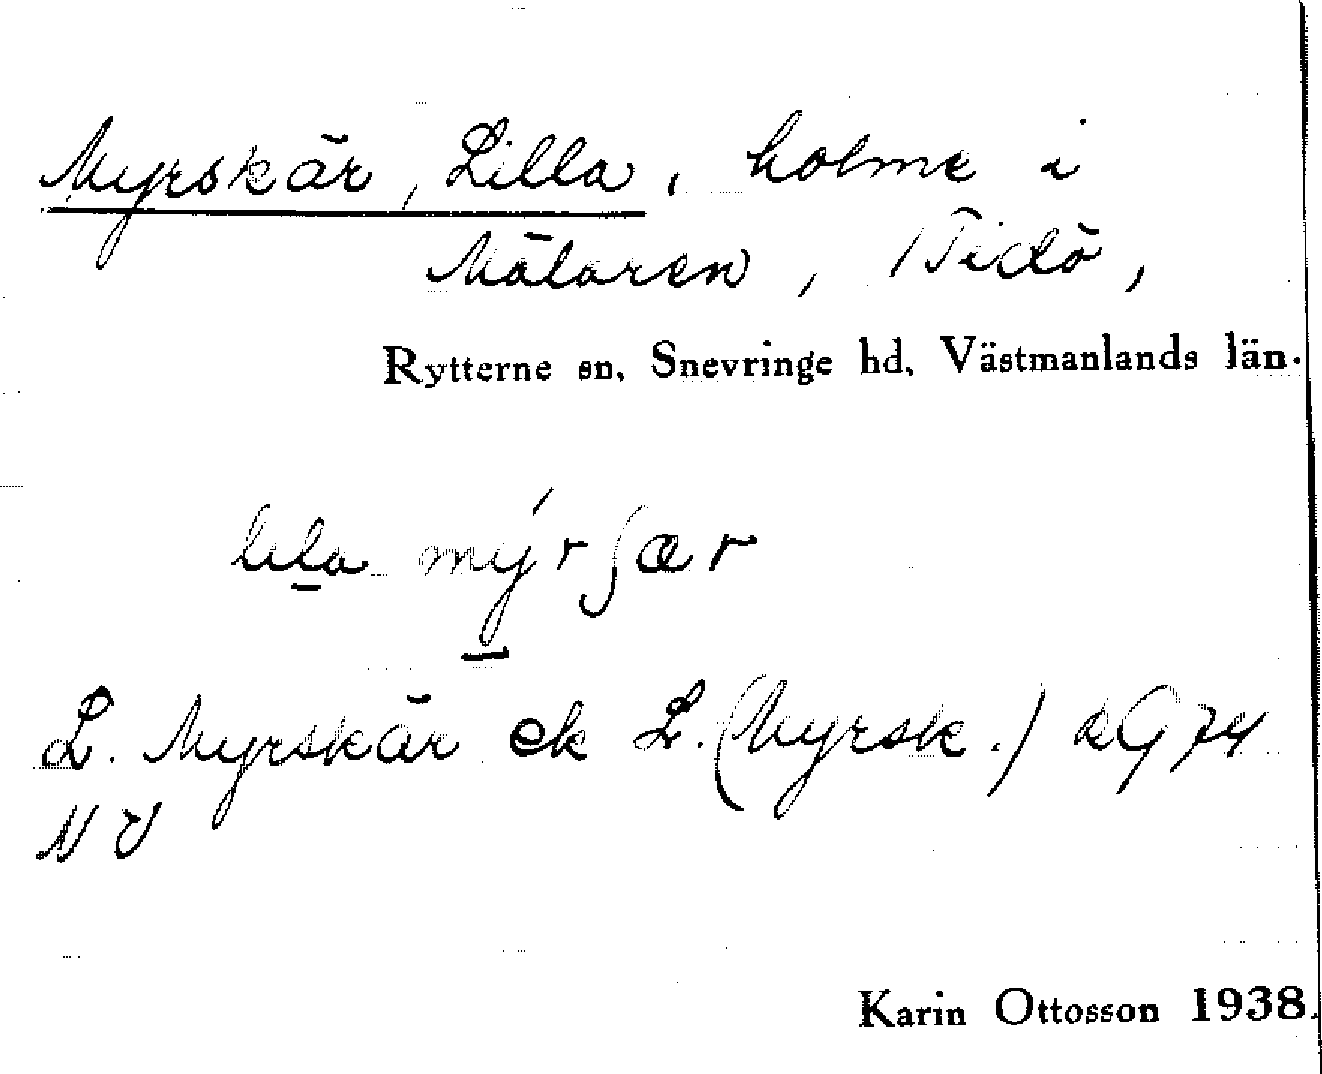 Myrskär, Lilla, holme i
Mälaren, Tidö,
Rytterne sn, Snevringe hd, Västmanlands län.
lila mýrʃær
L. Myrskär ek L. (Myrsk.)
NV
Karin Ottosson 1938.